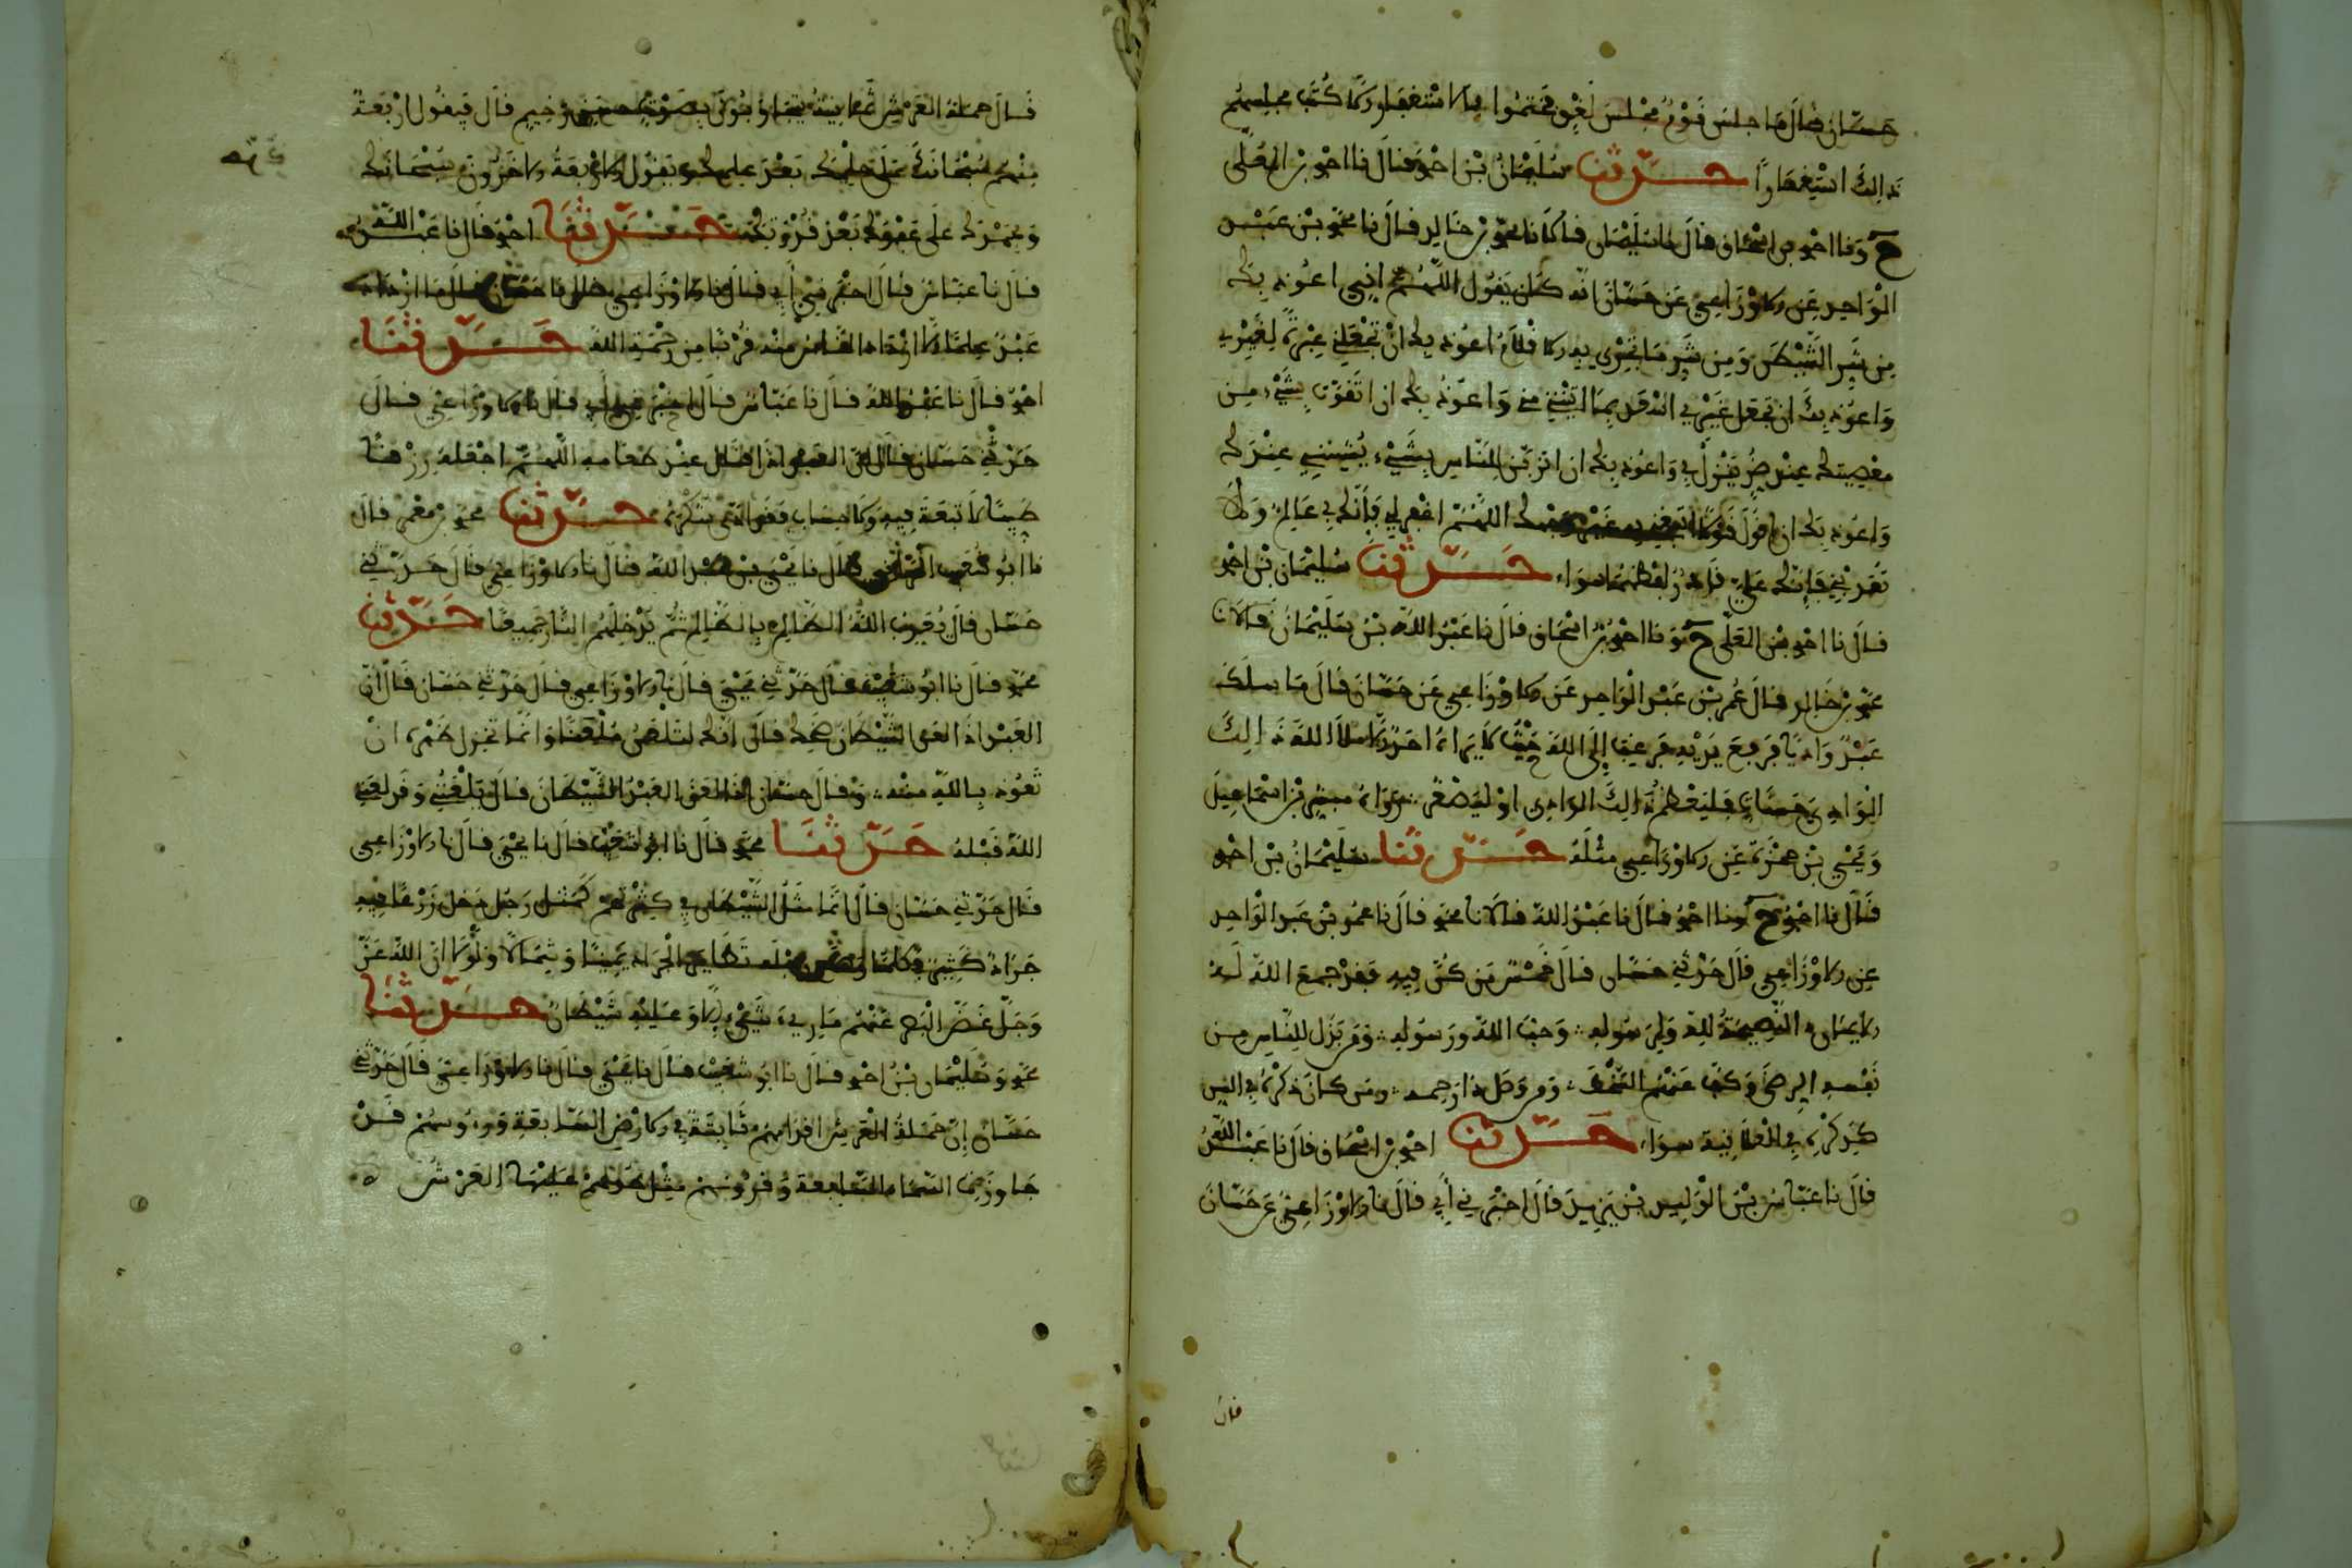 حسان قال ما جلس قوم مجلس لغو فختموا بالاستغفار الا كتب مجلسهم
ذالك استغفارا حدثنا سليمان بن احمد قال نا احمد بن المعلى
ح ونا احمد بن اسحاق قال نا سليمان قالا نا محمود بن خالد قال نا عمر بن عبد
الواحد عن الاوزاعي عن حسان انه كان يقول اللهم اني اعوذ بك
من شر الشيطن ومن شر ما تجري به الاقلام اعوذ بك ان تجعلني عبرة لغيري
واعوذ بك ان تجعل غيري اسعد بما اتيتني مني واعوذ بك ان اتقوت بشيء من
معصيتك عند ضر ينزل بي واعوذ بك ان اتزين للناس بشيء يشينني عندك
واعوذ بك ان اقول قولا ابتغي به غير وجهك اللهم اغفر لي فإنك بي عالم ولا
تعذبني فإنك علي قادر لفظهما سواء حدثنا سليمان بن احمد
قال نا احمد بن المعلى ح ونا احمد بن اسحاق قال نا عبد الله بن سليمان قالا نا
محمود بن خالد قال نا عمر بن عبد الواحد عن الاوزاعي عن حسان قال ما سلك
عبد واديا فرفع يديه فرغب إلى الله حيث لا يراه احد الا ملأ الله ذالك
الوادي حسنات فليعظم ذالك الوادي او ليصغر رواه مبشر بن اسماعيل
ويحيى بن حمزة عن الاوزاعي مثله حدثنا سليمان بن احمد
قال نا احمد ح ونا احمد قال نا عبد الله قالا نا محمود قال نا عمر بن عبد الواحد
عن الاوزاعي قال حدثني حسان قال خمس من كن فيه فقد جمع الله له
الايمان النصيحة لله ولرسوله وحب الله ورسوله ومن بذل للناس من
نفسه الرضى وكف عنهم السخط ومن وصل ذا رحمه ومن كان ذكره في السر
كذكره في العلانية سواء حدثنا احمد بن اسحاق قال نا عبد الله
قال نا عباس بن الوليد بن يزيد قال اخبرني أبي قال نا الاوزاعي عن حسان
قال
قال حملة العرش ثمانية يتجاوبون بصوت رخيم قال فيقول اربعة
منهم سبحانك على حلمك بعد علمك ويقول الاربعة الاخرون سبحانك
وبحمدك على عفوك بعد قدرتك حدثنا احمد قال نا عبد الله
قال نا عباس قال اخبرني أبي قال نا الاوزاعي قال نا حسان قال ما ازداد
عبد علما الا ازداد الناس منه قربا من رحمة الله حدثنا
احمد قال نا عبد الله قال نا عباس قال اخبرني أبي قال نا الاوزاعي قال
حدثني حسان قال ان العبد اذا قال عند طعامه اللهم اجعله رزقا
طيبا لا تبعة فيه ولا حساب فقد ادى شكره حدثنا محمد بن معمر قال
نا ابو شعيب الحراني قال نا يحيى بن عبد الله قال نا الاوزاعي قال حدثني
حسان قال يعذب الله الظالم بالظالم ثم يدخلهم النار جميعا حدثنا
محمد قال نا ابو شعيب قال حدثني يحيى قال نا الاوزاعي قال حدثني حسان قال ان
العبد اذا لعن الشيطان ضحك قال انك لتلعن ملعنا وانما تجزل ظهره ان
تعوذ بالله منه وقال حسان اذا لعن العبد الشيطان قال تلعنني وقد لعنني
الله قبله حدثنا محمد قال نا ابو شعيب قال نا يحيى قال نا الاوزاعي
قال حدثني حسان قال انما مثل الشيطان في كثرتهم كمثل رجل دخل زرعا فيه
جراد كثير فكلما وضع رجله تطاير الجراد يمينا وشمالا ولولا ان الله عز
وجل غض البصر عنهم ما ريء شيء الا وعليه شيطان حدثنا
محمد وسليمان بن احمد قال نا ابو شعيب قال نا يحيى قال نا الاوزاعي قال حدثني
حسان إن حملة العرش اقدامهم ثابتة في الارض السابعة ورءوسهم قد
جاوزت السماء السابعة وقرونهم مثل طولهم عليها العرش